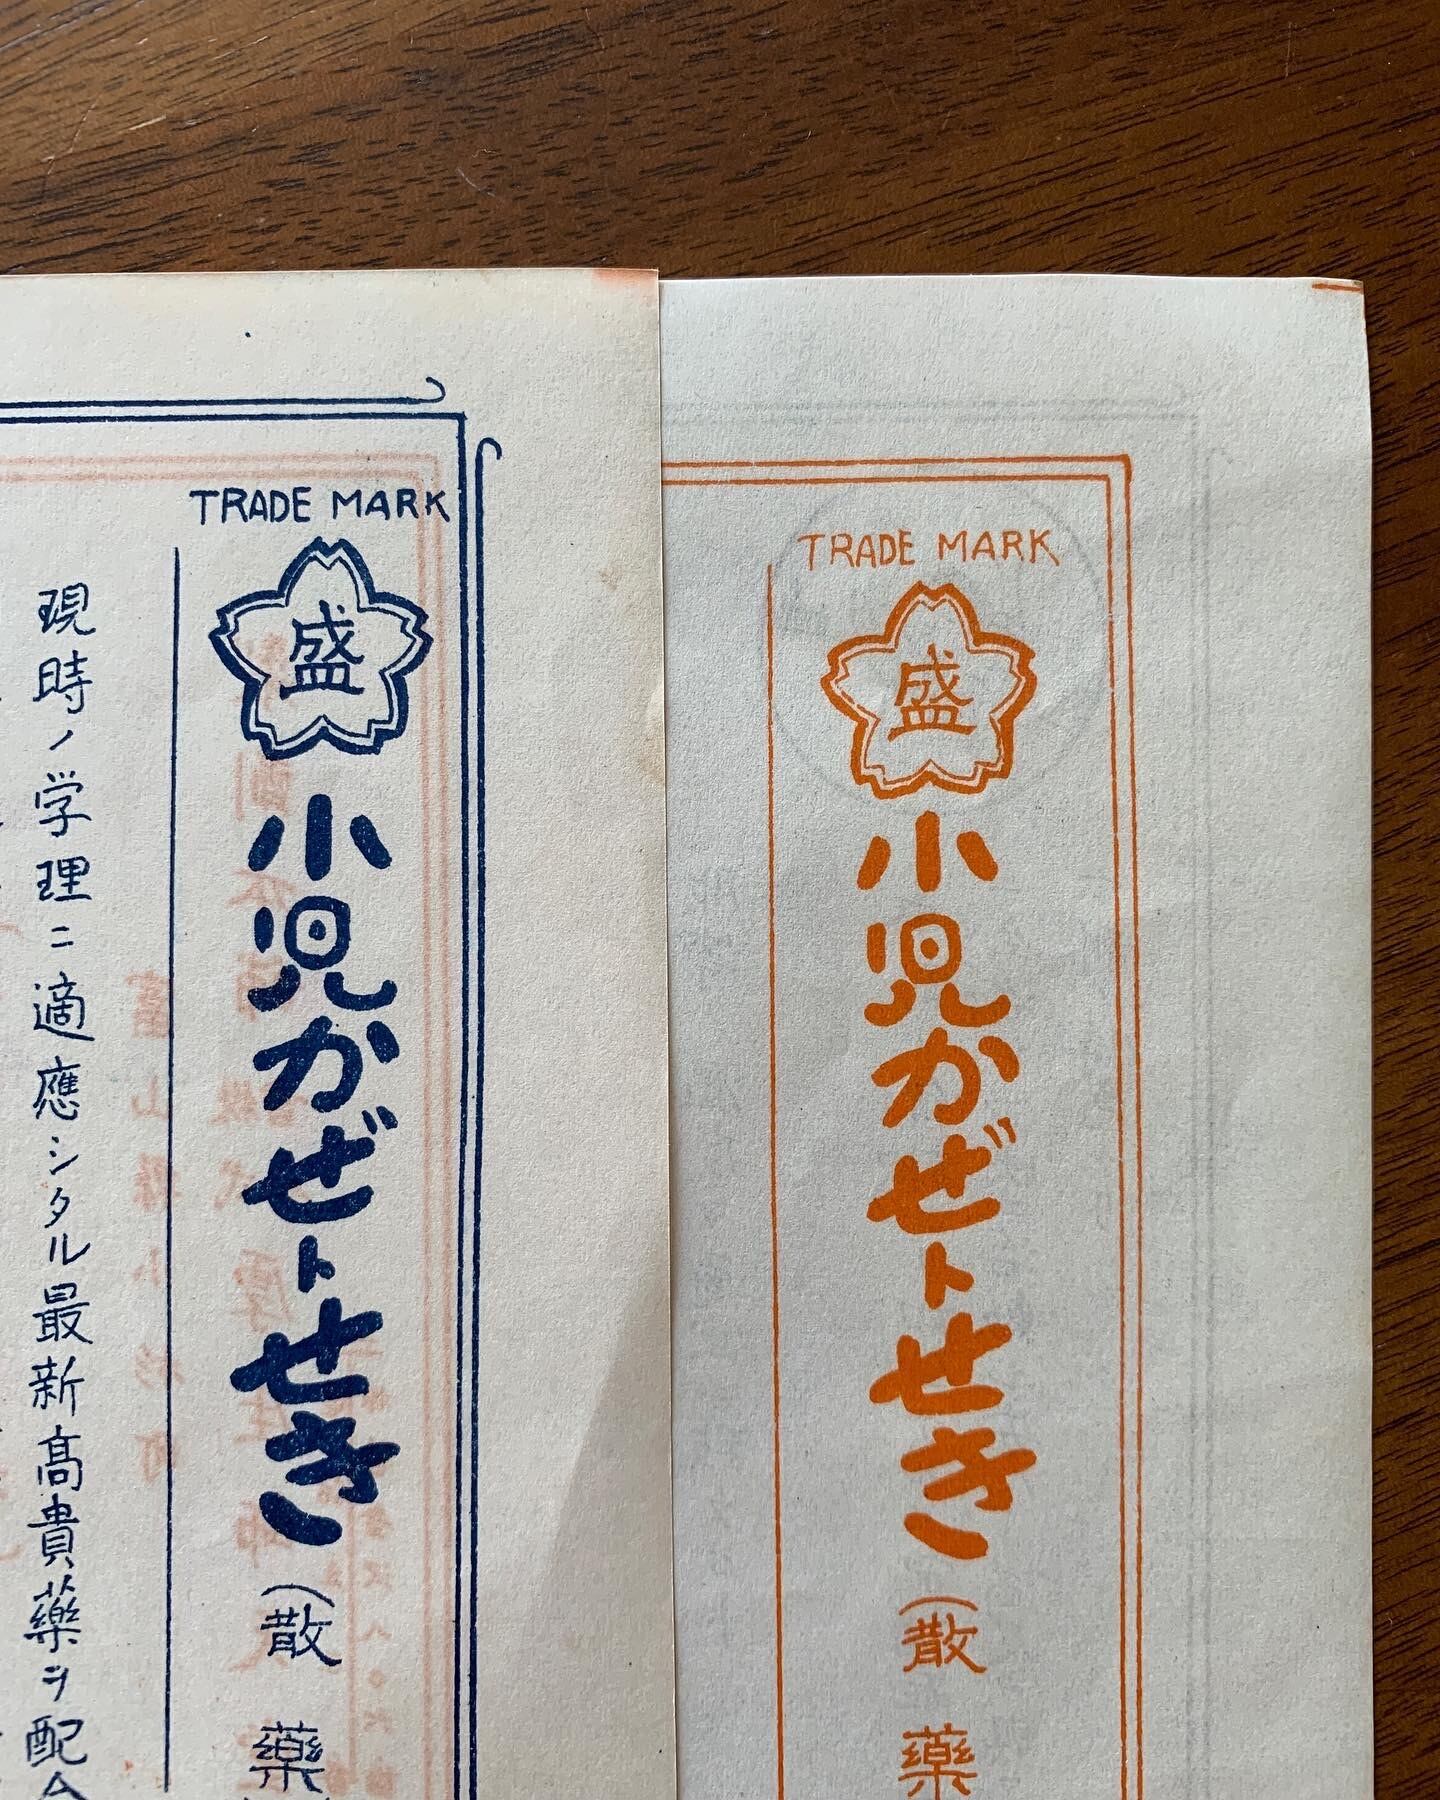 TRADE MARK
盛
小児かぜトせき
(散薬
TRADE MARK
盛
小児かぜトせき
(散藥
現時ノ学理ニ適應シタル最新高貴藥ヲ配合